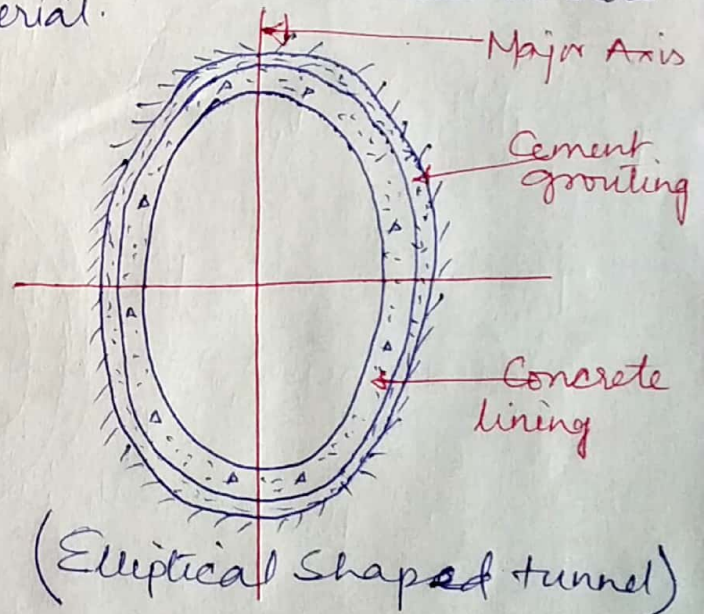 erial.
Major Axis
Cement
grouting
Concrete
lining
(Elliptical Shaped tunnel)